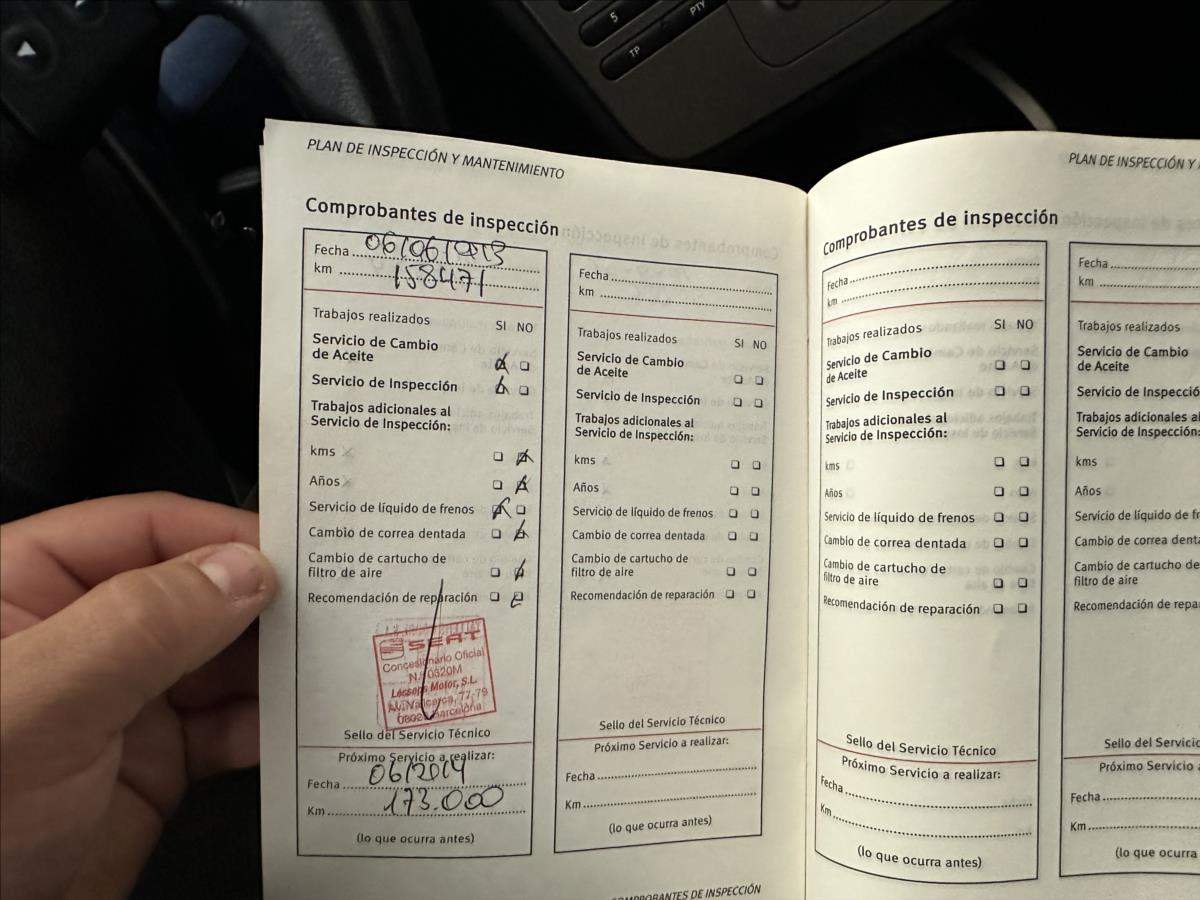 5
TP
PTY
PLAN DE INSPECCIÓN Y MANTENIMIENTO
Comprobantes de inspección
Fecha 06/06/2013
km 158471
Trabajos realizados SI NO
Servicio de Cambio
de Aceite
Servicio de Inspección
Trabajos adicionales al
Servicio de Inspección:
kms
Años
Servicio de líquido de frenos
Cambio de correa dentada
Cambio de cartucho de
filtro de aire
Recomendación de reparación
SEAT
Concesionario Oficial
N.º 0320M
Lesseps Motor, S.L.
77-79
Barcelona
Sello del Servicio Técnico
Próximo Servicio a realizar:
Fecha 06/2014
Km 173.000
(lo que ocurra antes)
Fecha
km
Trabajos realizados SI NO
Servicio de Cambio
de Aceite
Servicio de Inspección
Trabajos adicionales al
Servicio de Inspección:
kms
Años
Servicio de líquido de frenos
Cambio de correa dentada
Cambio de cartucho de
filtro de aire
Recomendación de reparación
Sello del Servicio Técnico
Próximo Servicio a realizar:
Fecha
Km
(lo que ocurra antes)
COMPROBANTES DE INSPECCIÓN
PLAN DE INSPECCIÓN Y
Comprobantes de inspección
Fecha
km
Trabajos realizados SI NO
Servicio de Cambio
de Aceite
Servicio de Inspección
Trabajos adicionales al
Servicio de Inspección:
kms
Años
Servicio de líquido de frenos
Cambio de correa dentada
Cambio de cartucho de
filtro de aire
Recomendación de reparación
Sello del Servicio Técnico
Próximo Servicio a realizar:
Fecha
Km
(lo que ocurra antes)
Fecha
km
Trabajos realizados
Servicio de Cambio
de Aceite
Servicio de Inspección
Trabajos adicionales al
Servicio de Inspección:
kms
Años
Servicio de líquido de fr
Cambio de correa denta
Cambio de cartucho de
filtro de aire
Recomendación de repa
Sello del Servicio
Próximo Servicio a
Fecha
Km
(lo que ocurra